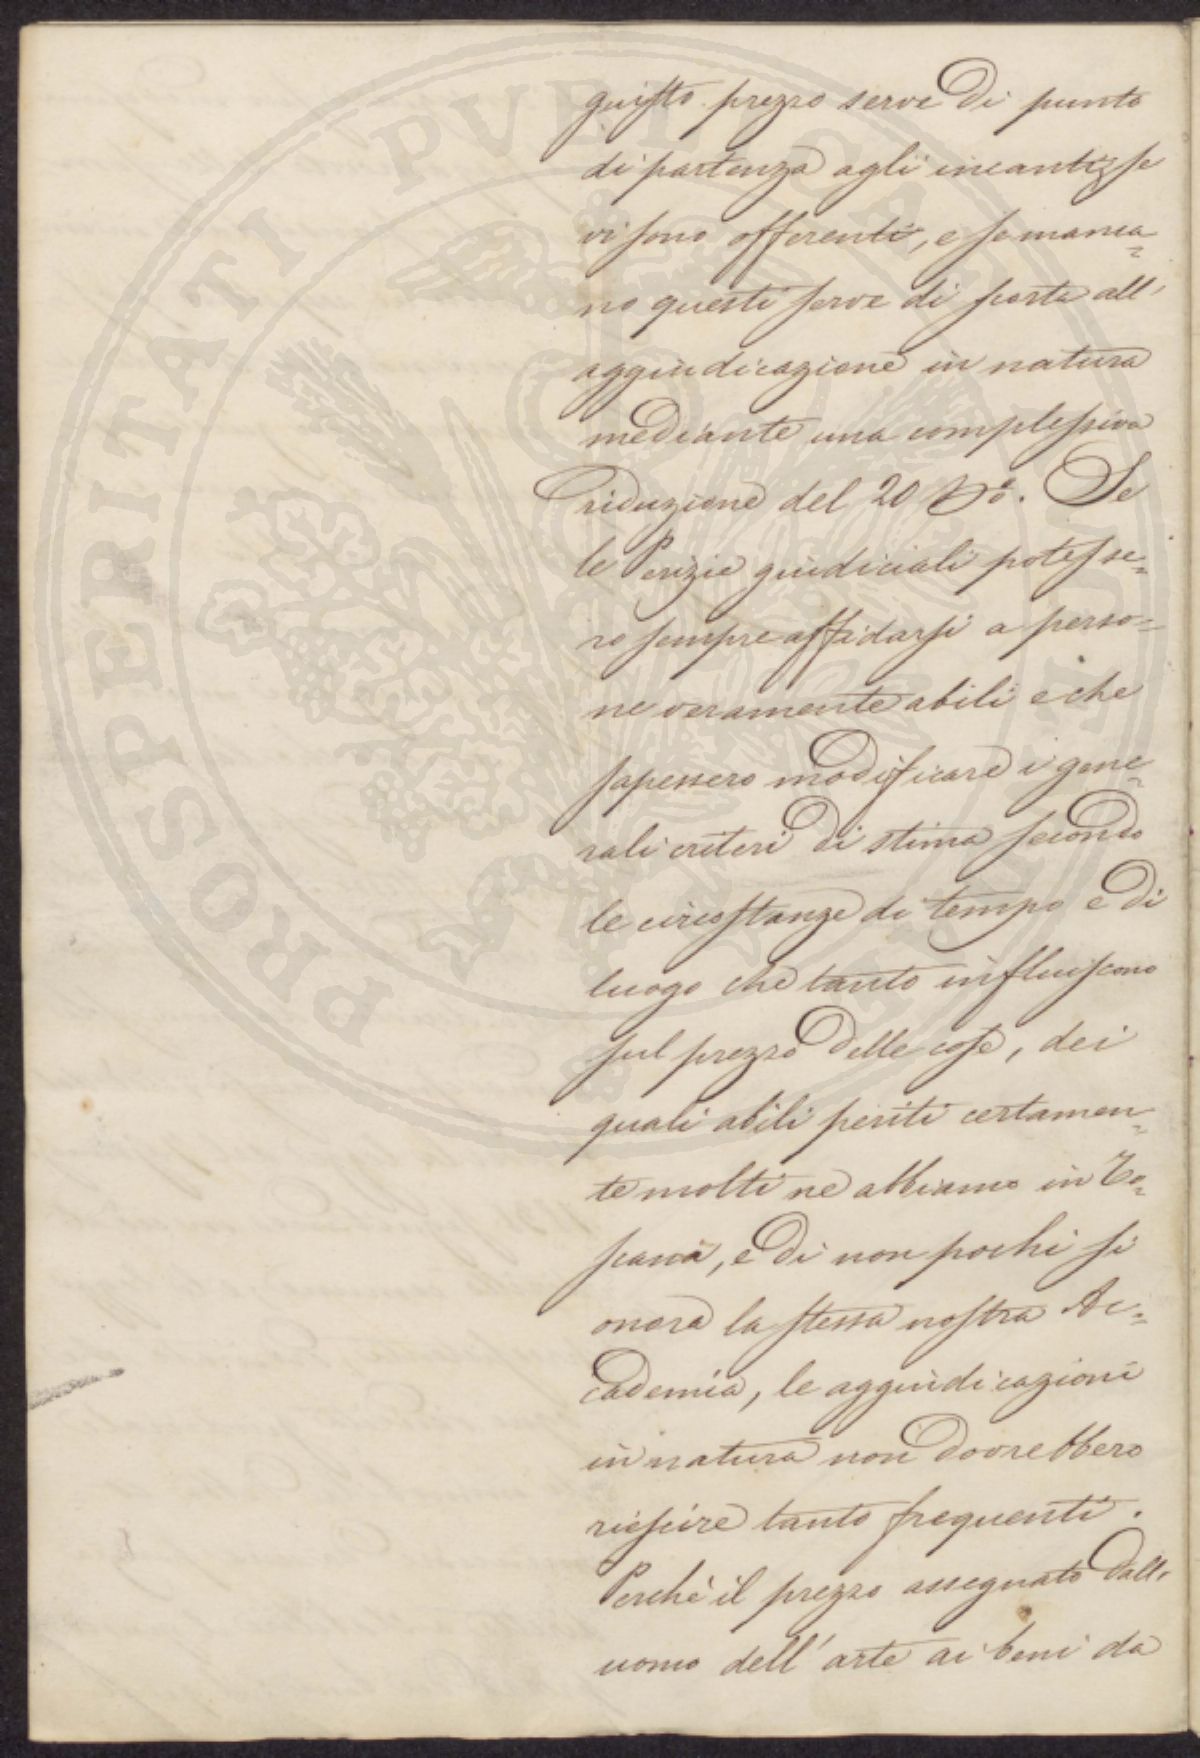 giusto prezzo serve di punto
di partenza agli incanti se
vi sono offerenti, e se manca=
no questi serve di porta all'
aggiudicazione in natura
mediante una complessiva
riduzione del 20 p%. Se
le Perizie giudiciali potesse=
ro sempre affidarsi a perso=
ne veramente abili e che
sapessero modificare i gene=
rali criteri di stima secondo
le circostanze di tempo e di
luogo che tanto influiscono
sul prezzo delle cose, dei
quali abili periti certamen=
te molti ne abbiamo in To=
scana, e di non pochi si
onora la stessa nostra Ac=
cademia, le aggiudicazioni
in natura non dovrebbero
riescire tanto frequenti.
Perchè il prezzo assegnato dall'
uomo dell'arte ai beni da
PROSPERITATI PVBLICAE